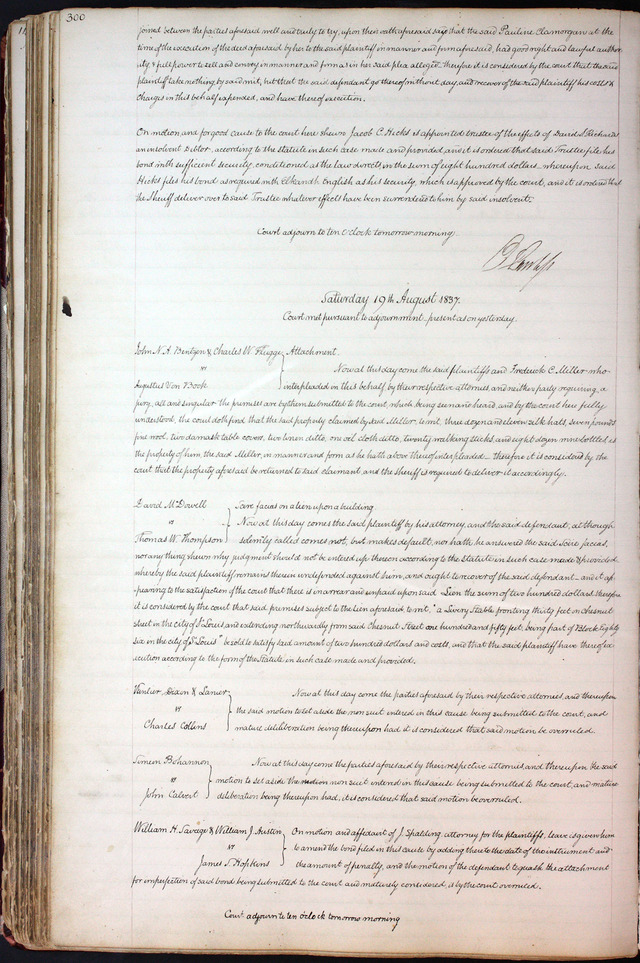 300
joined between the parties aforesaid well and truly to try, upon their oath aforesaid say that the said Pauline Clamorgan at the
time of the execution of the deed aforesaid by her to the said plaintiff in manner and form aforesaid, had good right and lawful author-
ity & full power to sell and convey in manner and form as in her said plea alleged. therefore it is considered by the court that the said
plaintiff take nothing by said writ, but that the said defendant go thereof without day, and recover of the said plaintiff his costs &
charges in this behalf expended, and have thereof execution.
On motion and for good cause to the court here shewn Jacob C. Hicks is appointed trustee of the effects of David S. Richards
an insolvent Debtor, according to the statute in such case made and provided, and it is ordered that said Trustee file his
bond with sufficient security, conditioned as the law directs in the sum of eight hundred dollars whereupon said
Hicks files his bond as required with Elkanah English as his security, which is approved by the court, and it is ordered that
the Sheriff deliver over to said Trustee whatever effects have been surrendered to him by said insolvent.
Court adjourn to ten o'clock tomorrow morning.
Saturday 19th August 1837.
Court met pursuant to adjournment. present as on yesterday.
John N. A. Bentzen & Charles W. Flugge Attachment.
vs Now at this day come the said plaintiffs and Frederick C. Miller who
Augustus Von Bock interpleaded in this behalf, by their respective attornies, and neither party requiring, a
jury, all and singular the premises are by them submitted to the court, which being seen and heard, and by the court here fully
understood, the court doth find that the said property claimed by said Miller, to wit, three dozen and eleven silk hats, seven pounds
pine wood, two damask table covers, two linen ditto, one oil cloth ditto, twenty walking sticks and eight dozen wine bottles is
the property of him, the said Miller, in manner and form as he hath above thereof interpleaded – therefore it is considered by the
court that the property aforesaid be returned to said claimant and the Sheriff is required to deliver it accordingly.
David McDowell Scire facias on a lien upon a building.
vs Now at this day comes the said plaintiff by his attorney, and the said defendant, although
Thomas W. Thompson solemnly called comes not, but makes default, nor hath he answered the said Scire facias,
nor any thing shewn why judgment should not be entered up thereon according to the Statute in such case made & provided.
whereby the said plaintiff remains therein undefended against him, and ought to recover of the said defendant – and it ap-
pearing to the satisfaction of the court that there is in arrear and unpaid upon said Lien the sum of two hundred dollars. therefore
it is considered by the court that said premises subject to the lien aforesaid to wit. "a Livery Stable fronting thirty feet on chesnut
street in the city of St Louis and extending northwardly from said Chesnut Street one hundred and fifty feet, being part of Block Eighty
six in the city of St Louis" be sold to satisfy said amount of two hundred dollars and costs, and that the said plaintiff have thereof ex-
ecution according to the form of the Statute in such case made and provided.
Vanlier Dixon & Lanier Now at this day come the parties aforesaid by their respective attornies, and thereupon
vs the said motion to set aside the non suit entered in this cause being submitted to the court, and
Charles Collins mature deliberation being thereupon had, it is considered that said motion be overruled.
Simeon Bohannon Now at this day come the parties aforesaid by their respective attornies and thereupon the said
vs motion to set aside the motion non suit entered in this cause being submitted to the court, and mature
John Calvert deliberation being thereupon had, it is considered that said motion be overruled.
William H. Savage & William J. Austin On motion and affidavit of J. Spalding, attorney for the plaintiffs, leave is given him
vs to amend the bond filed in this cause by adding thereto the date of the instrument and
James S. Hopkins the amount of penalty, and the motion of the defendant to quash the attachment
for imperfection of said bond being submitted to the court and maturely considered, is by the court overruled.
Court adjourn to ten o'clock tomorrow morning